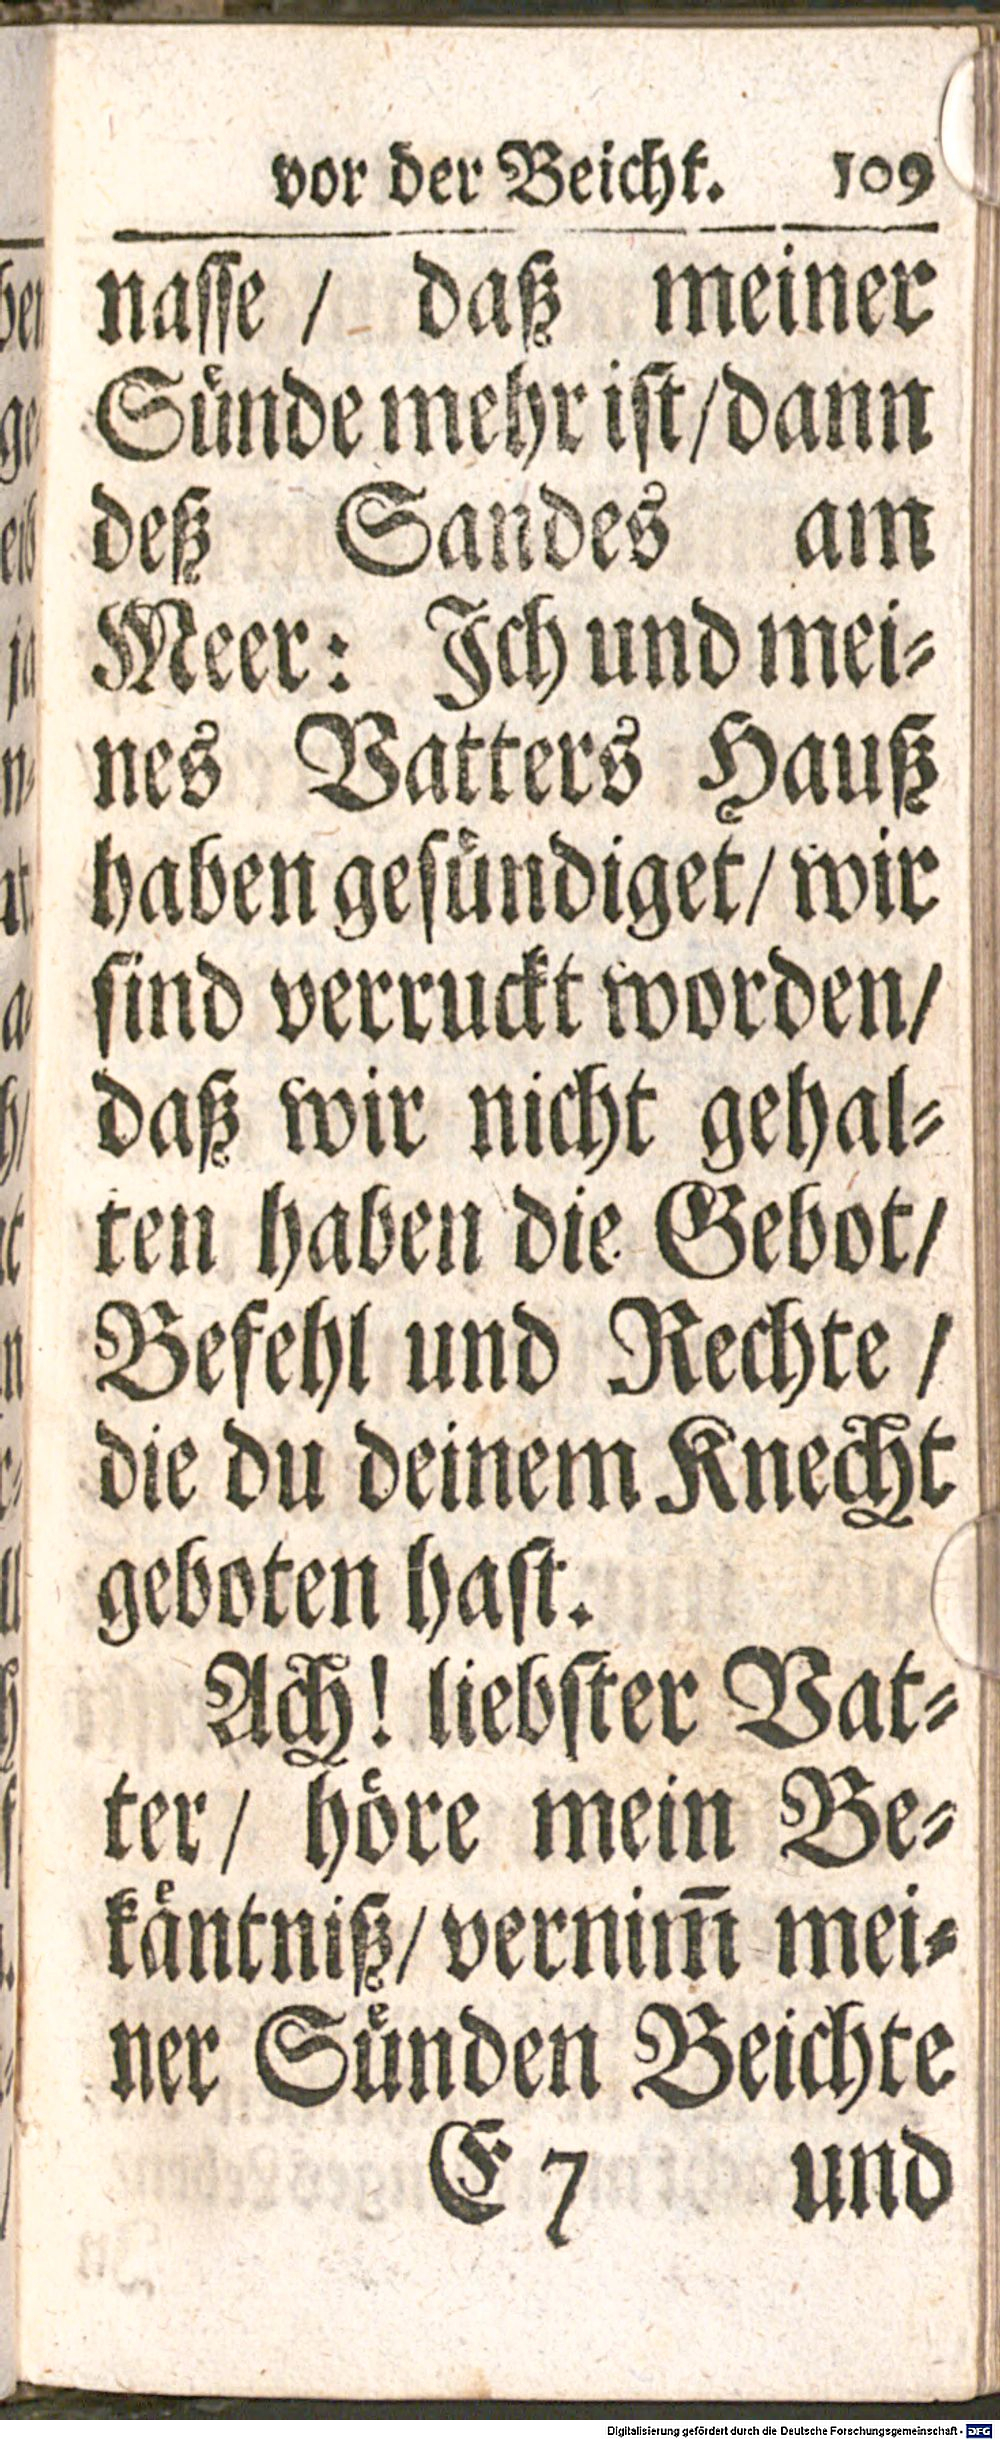 vor der Beicht. 109
nasse / daß meiner
Sünde mehr ist/dann
deß Sandes am
Meer: Ich und mei-
nes Vatters Hauß
haben gesündiget/ wir
sind verruckt worden/
daß wir nicht gehal-
ten haben die Gebot/
Befehl und Rechte /
die du deinem Knecht
geboten hast.
Ach! liebster Vat-
ter/ höre mein Be-
käntniß/ vernim̅ mei-
ner Sünden Beichte
E 7 und
Digitalisierung gefördert durch die Deutsche Forschungsgemeinschaft - DFG